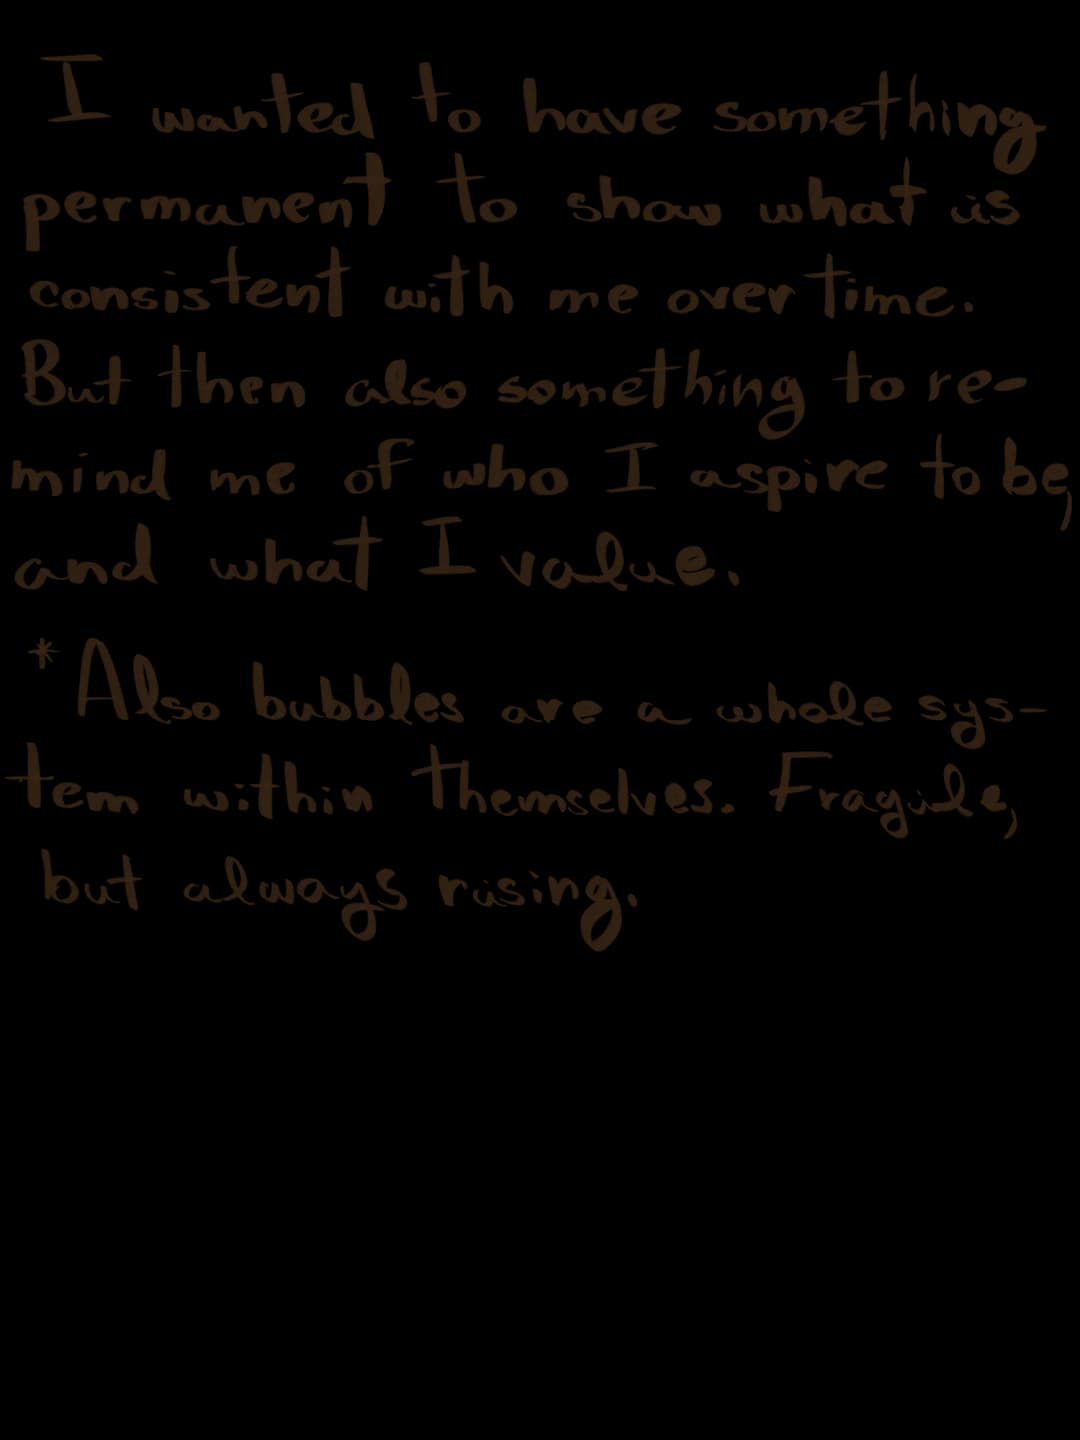 I wanted to have something
permanent to show what is
consistent with me over time.
But then also something to re-
mind me of who I aspire to be,
and what I value.
*Also bubbles are a whole sys-
tem within themselves. Fragile,
but always rising.